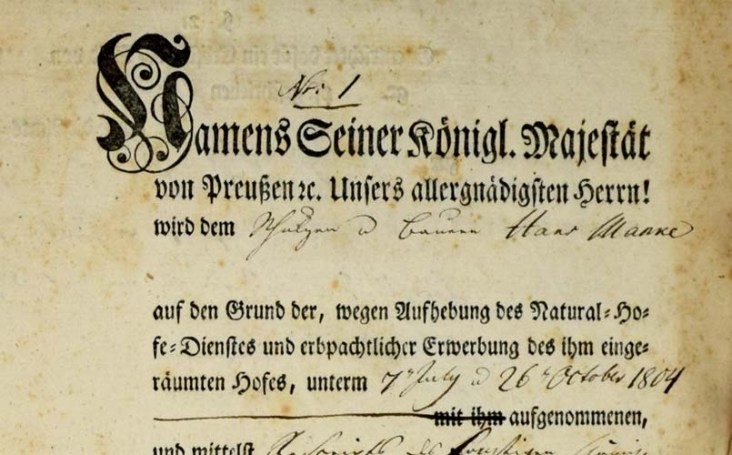 No: 1
Namens Seiner Königl. Majestät
von Preußen ꝛc. Unsers allergnädigsten Herrn!
wird dem Schulzen u Bauern Hans Manke
auf den Grund der, wegen Aufhebung des Natural-Ho-
fe-Dienstes und erbpachtlicher Erwerbung des ihm einge-
räumten Hofes, unterm 7t July u 26t October 1804
mit ihm aufgenommenen,
und mittelst Rescripts des